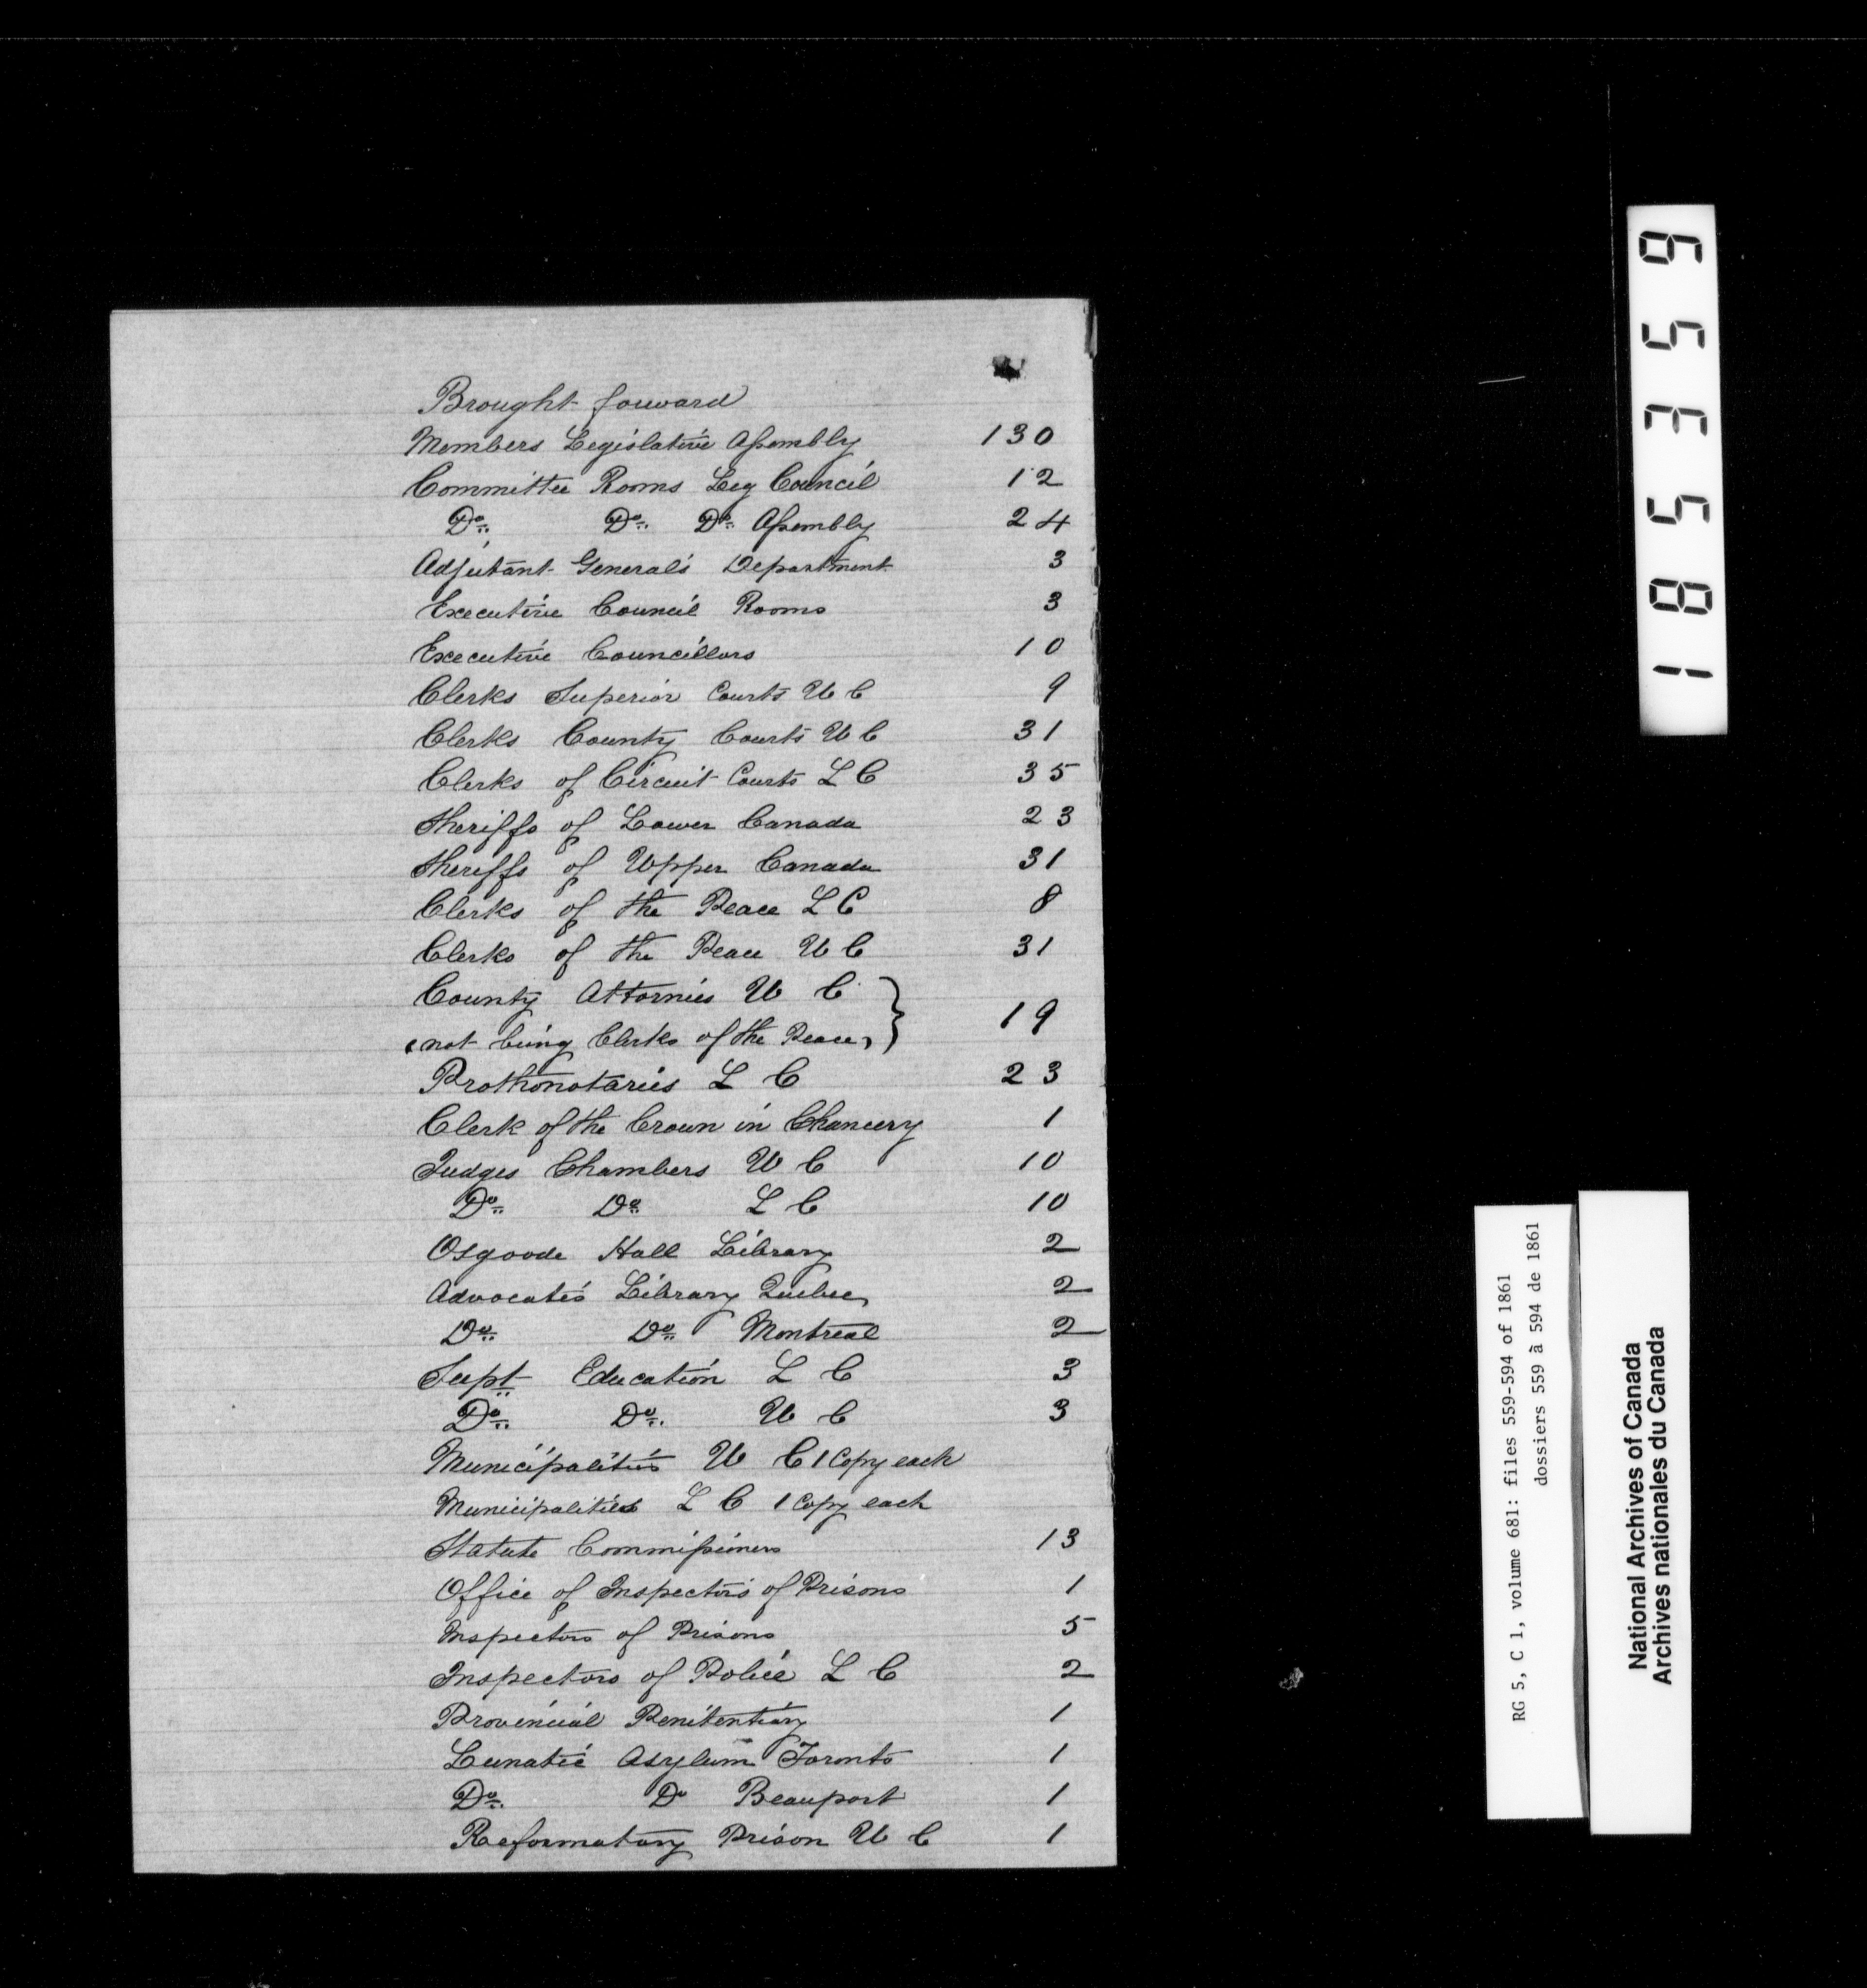 Brought forward
Members Legislative Assembly 130
Committee Rooms Leg Council 12
Do. Do. Do. Assembly 24
Adjutant General's Department 3
Executive Council Rooms 3
Executive Councillors 10
Clerks Superior Courts U C 9
Clerks County Courts U C 31
Clerks of Circuit Courts L C 35
Sheriffs of Lower Canada 23
Sheriffs of Upper Canada 31
Clerks of the Peace L C 8
Clerks of the Peace U C 31
County Attornies U C
(not being Clerks of the Peace) } 19
Prothonotaries L C 23
Clerk of the Crown in Chancery 1
Judges Chambers U C 10
Do. Do. L C 10
Osgoode Hall Library 2
Advocates Library Quebec 2
Do. Do. Montreal 2
Supt Education L C 3
Do. Do. U C 3
Municipalities U C 1 Copy each
Municipalities L C 1 Copy each
Statute Commissioners 13
Office of Inspectors of Prisons 1
Inspectors of Prisons 5
Inspectors of Police L C 2
Provincial Penitentiary 1
Lunatic Asylum Toronto 1
Do. Do Beauport 1
Reformatory Prison U C 1
185359
RG 5, C 1, volume 681: files 559-594 of 1861
dossiers 559 à 594 de 1861
National Archives of Canada
Archives nationales du Canada